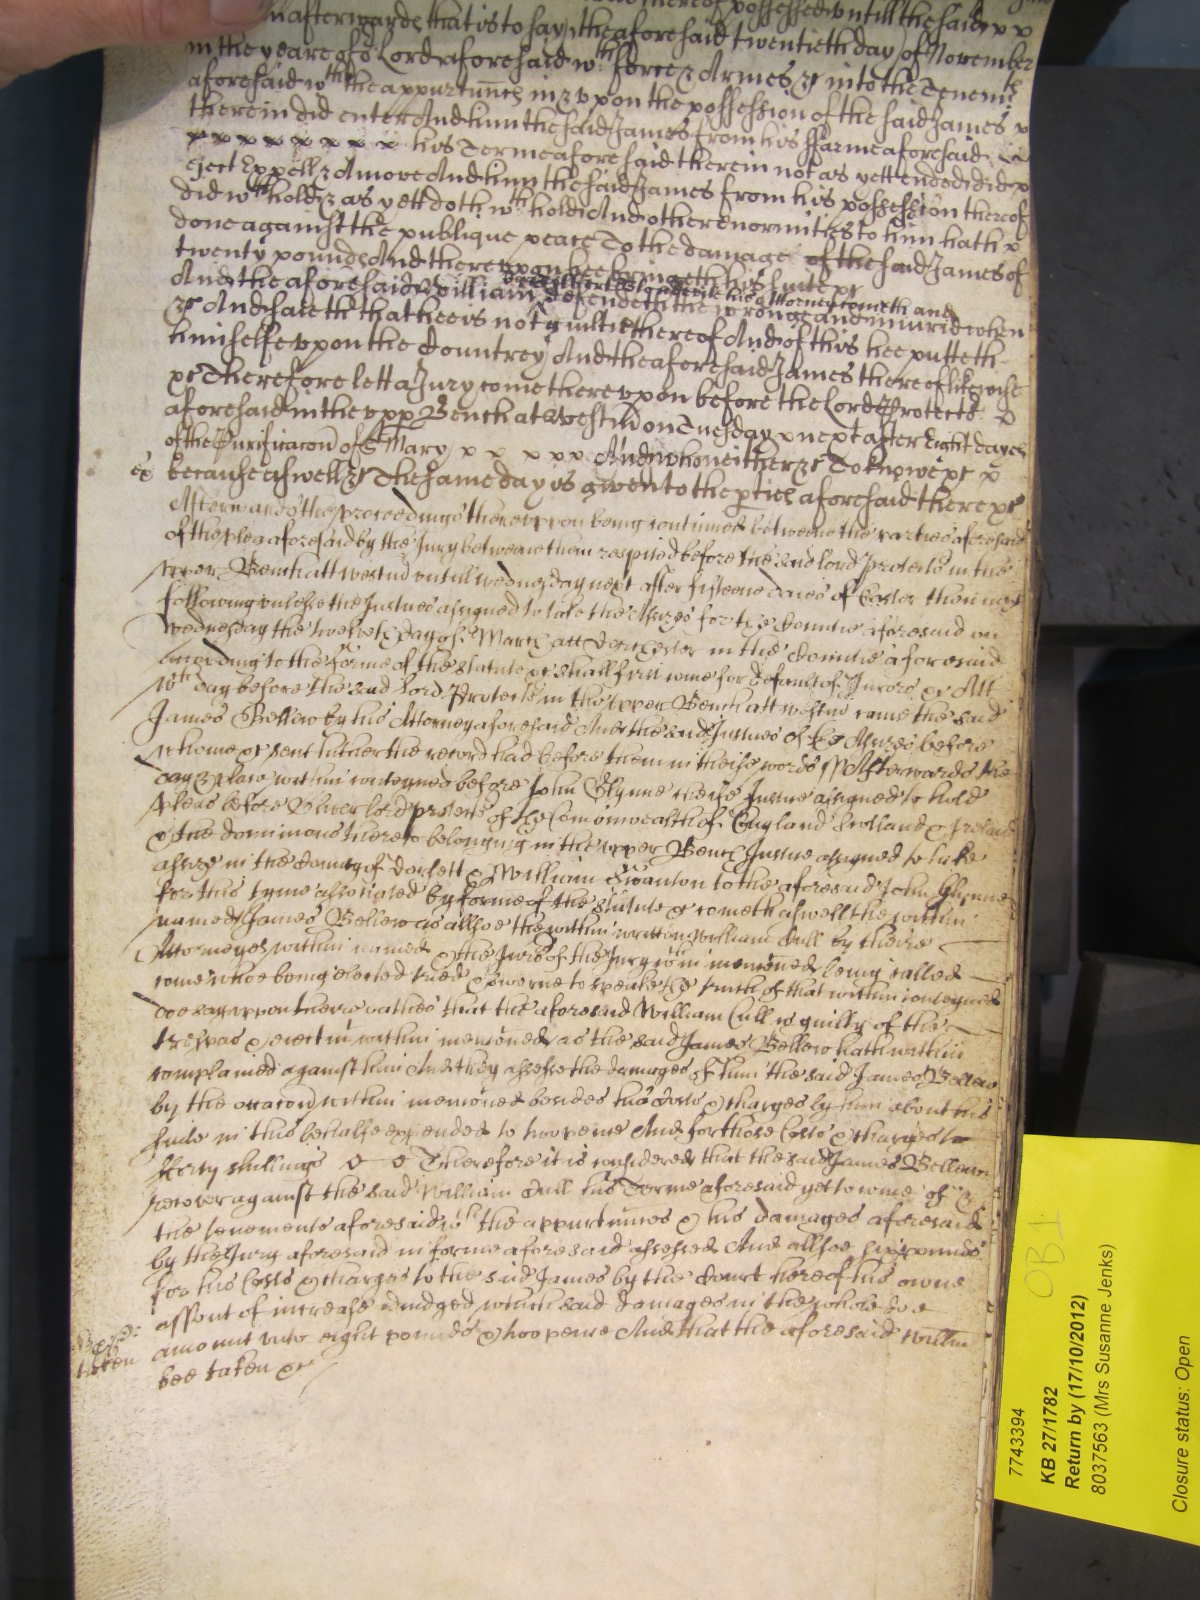 thereof possessed untill the said x x
afterwards that is to say the aforesaid twentieth day of November
in the yeare of oʳ Lord aforesaid wᵗʰ force & Armes &c into the Tenemᵗˢ
aforesaid wᵗʰ the appurtunncs in & upon the possession of the said James x
therein did enter And him the said James from his ffarme aforesaid
x x x x x x x his Terme aforesaid therein not as yett ended did x
eject Expell & Amove And him the said James from his possession thereof
did wᵗʰhold & as yett doth wᵗʰhold And other Enormities to him hath x
done against the publique peace To the damage of the said James of
twenty pounds And thereupon hee bringeth his suite &c
And the aforesaid William by his Attorney cometh and
defendeth the wronge and iniurie when
&c And saieth that hee is not guiltie thereof And of this hee putteth
himselfe upon the Countrey And the aforesaid James thereof likewise
&c Therefore lett a Jury come thereupon before the Lord Protectʳ x
aforesaid in the upp Bench at Westmʳ on Tuesday x next after Eight dayes
of the Purificacon of Sᵗ Mary x x x x x And who neither &c To know &c x
because aswell &c The same day is given to the pties aforesaid there &c
Afterwards the proceedings thereuppon being continued betweene the parties aforesaid
of the plea aforesaid by the Jury betweene them respited before the said lord Protectʳ in the
upper Bench att Westmʳ untill wednesday next after fifteene daies of Easter then next
following unlesse the Justices assigned to take the Assizes for the Countie aforesaid on
Wednesday the twelveth day of March att Dorchester in the Countie aforesaid
according to the forme of the statute &c shall first come for default of Jurors &c Att
wᶜʰ day before the said lord Protectʳ in the upper Bench att westmʳ came the said
James Bellew by his Attorney aforesaid And the said Justices of the Assizes before
whome &c sent hither the record had before them in theise words ss Afterwards the
day & place within conteyned before John Glynne cheife Justice assigned to hold
pleas before Oliver lord protectʳ of the Comonwealth of England Scotland & Ireland
& the dominions thereto belonging in the upper Bench Justice assigned to take
assizes in the County of Dorsett & William Swanton to the aforesaid John Glynne
for this tyme associated by forme of the statute &c cometh aswell the within
named James Bellew as allsoe the within written William Cull by theire
Attorneyes within named & the Jurors of the Jury within mencioned being called
come whoe being elected tried & sworne to speake the truth of that within conteyned
doe say uppon theire oathes that the aforesaid William Cull is guilty of the
trespas & ejectmᵗ within mencioned as the said James Bellew hath within
complained against him And they assesse the damages of him the said James Bellew
by the occacon within mencioned besides his Costs & charges by him about his
suite in this behalfe expended to twopence And for those Costs & charges to
fforty shillings o o Therefore it is considered that the said James Bellew
recover against the said William Cull his Terme aforesaid yet to come of & in
the tenements aforesaid wᵗʰ the appurtunncs & his damages aforesaid
by the Jury aforesaid in forme aforesaid assessed And allsoe six pounds
for his Costs & charges to the said James by the Court here of his owne
assent of increase adiudged which said damages in the whole doe
amount unto eight pounds & twopence And that the aforesaid Willm
bee taken &c
taken
OB 1
7743394
KB 27/1782
Return by (17/10/2012)
8037563 (Mrs Susanne Jenks)
Closure status: Open